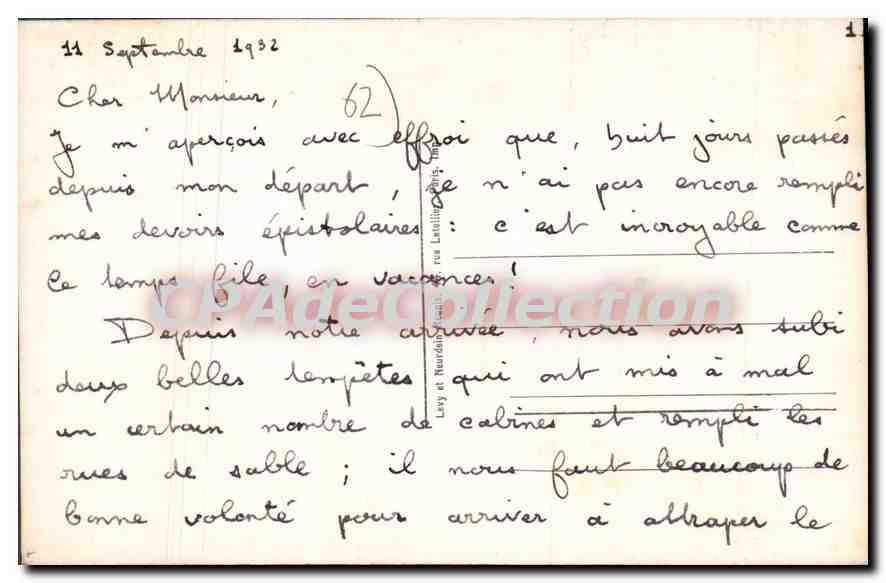 11 Septembre 1932
1
Cher Monsieur,
62
Je m'aperçois avec effroi que, huit jours passés
depuis mon départ, je n'ai pas encore rempli
mes devoirs épistolaires : c'est incroyable comme
le temps file, en vacances !
CPAdeCollection
Depuis notre arrivée, nous avons subi
deux belles tempêtes qui ont mis à mal
un certain nombre de cabines et rempli les
rues de sable ; il nous faut beaucoup de
bonne volonté pour arriver à attraper le
Levy et Neurdein Réunis, rue Letellier, Paris, Imp.